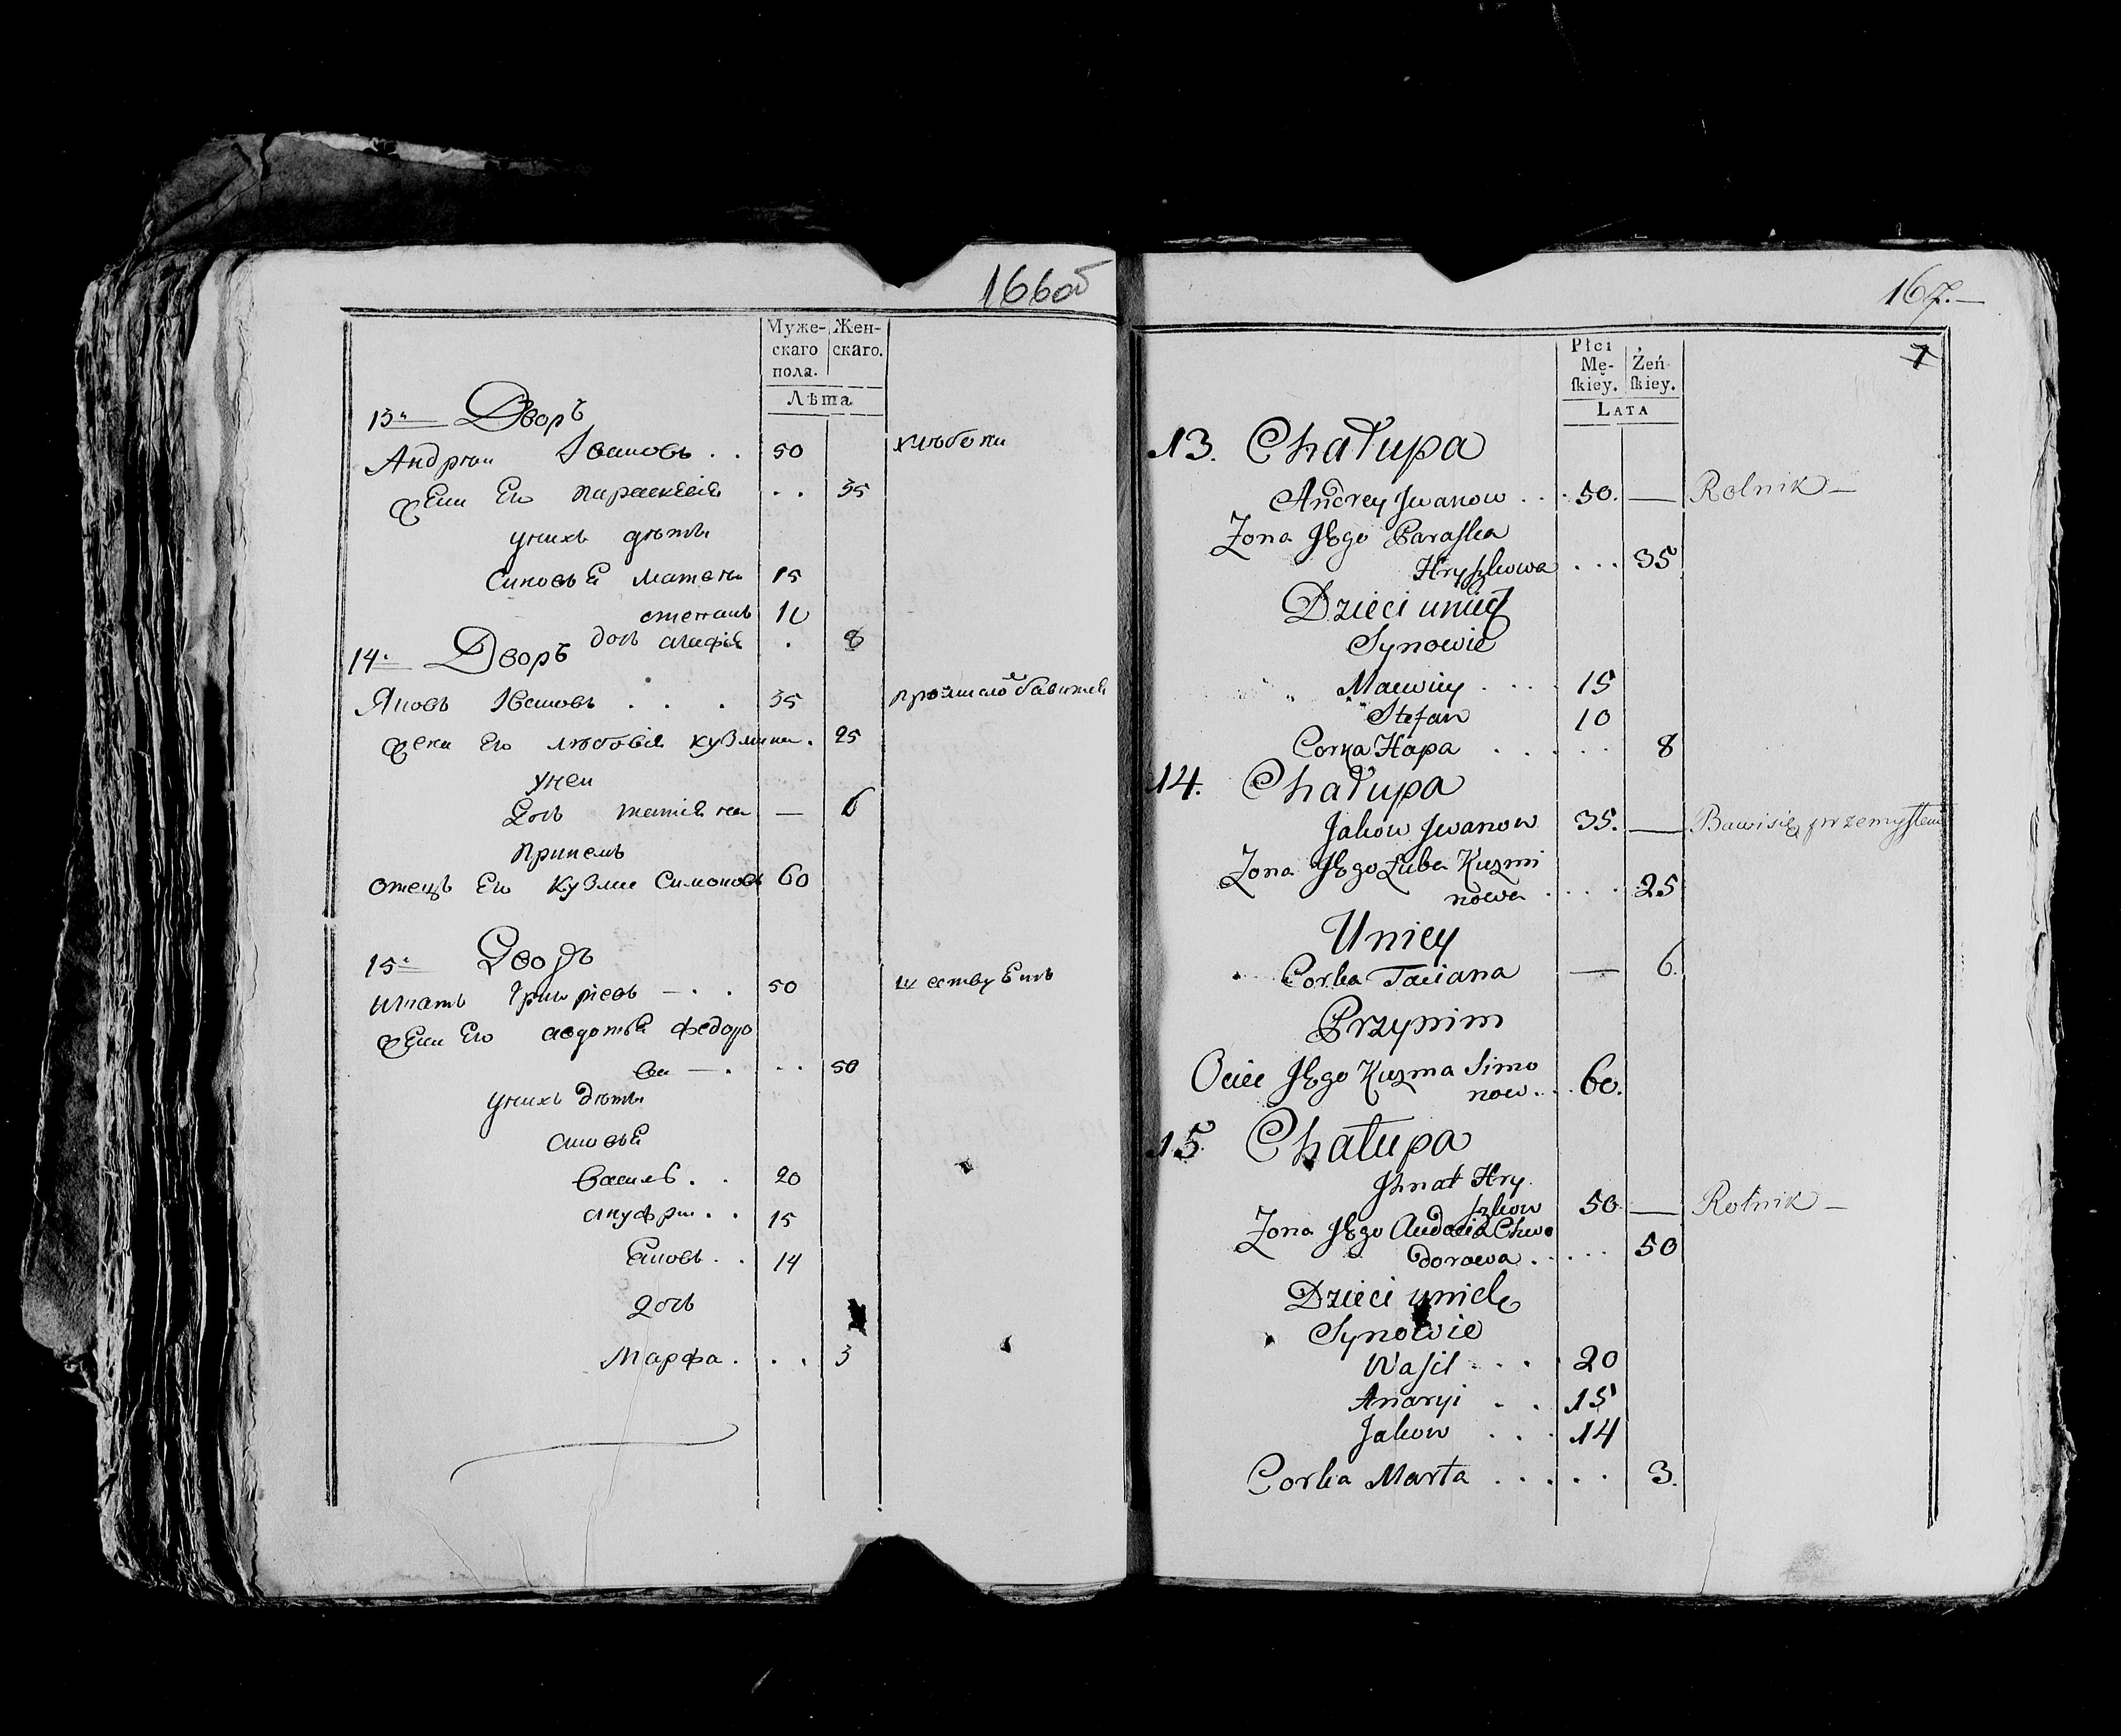 166об
Муже-
скаго
пола.
Жен-
скаго.
Лѣта
13. Дворъ
Андреи Ивановъ . . 50
Жена Его параскевия . . 35
униχъ дѣти
Синовья Матвеи 15
степанъ 10
дочь агафия . 8
14. Дворъ
Яковъ Ивановъ . . . 35
Жена Его любовия кузмина . 25
унеи
Дочь татияна — 6
При немъ
отецъ Его кузма Симоновъ 60
15. Дворъ
игнатъ Григориевъ — . . 50
Жена Его авдотья федоро
ва — . . . 50
унихъ дѣти
синовья
василь . . 20
ануфри . . 15
Яковъ . . 14
Дочь
Марфа . . . 3
167.—
7
Płci
Mę-
ſkiey.
Żeń
ſkiey.
LATA
13. Chałupa
Andrey Jwanow . . . 50. — Rolnik —
Zona JEgo Paraſka
Hryszkowa . . . 35
Dzieci unich
Synowie
Maewiey . . . 15
Stefan 10
Corka Hapa . . . . 8
14. Chałupa
Jakow Jwanow 35. — Bawi się przemyſłem
Zona JEgo Luba Kuzmi
nowa . . . . 25
Uniey
Corka Taciana — 6.
Przynim
Ociec JEgo Kuzma Simo
now . . . 60.
15 Chałupa
Jhnat Hry
szkow 50 — Rolnik —
Zona JEgo Audocia Chwe
dorowa . . . . 50
Dzieci unich
Synowie
Waſil . . . 20
Anaryi . . 15
Jakow . . . 14
Corka Marta . . . . . 3.